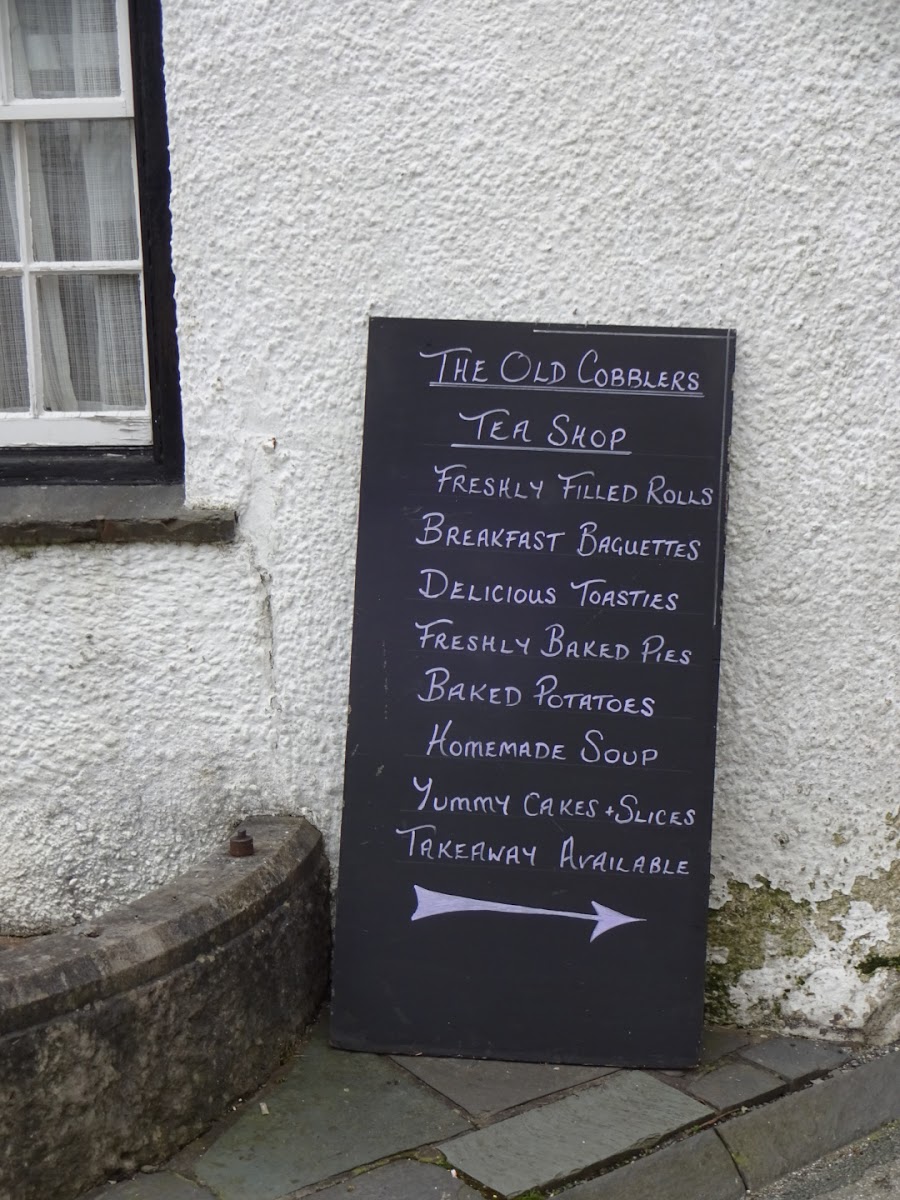 THE OLD COBBLERS
TEA SHOP
FRESHLY FILLED ROLLS
BREAKFAST BAGUETTES
DELICIOUS TOASTIES
FRESHLY BAKED PIES
BAKED POTATOES
HOMEMADE SOUP
YUMMY CAKES + SLICES
TAKEAWAY AVAILABLE